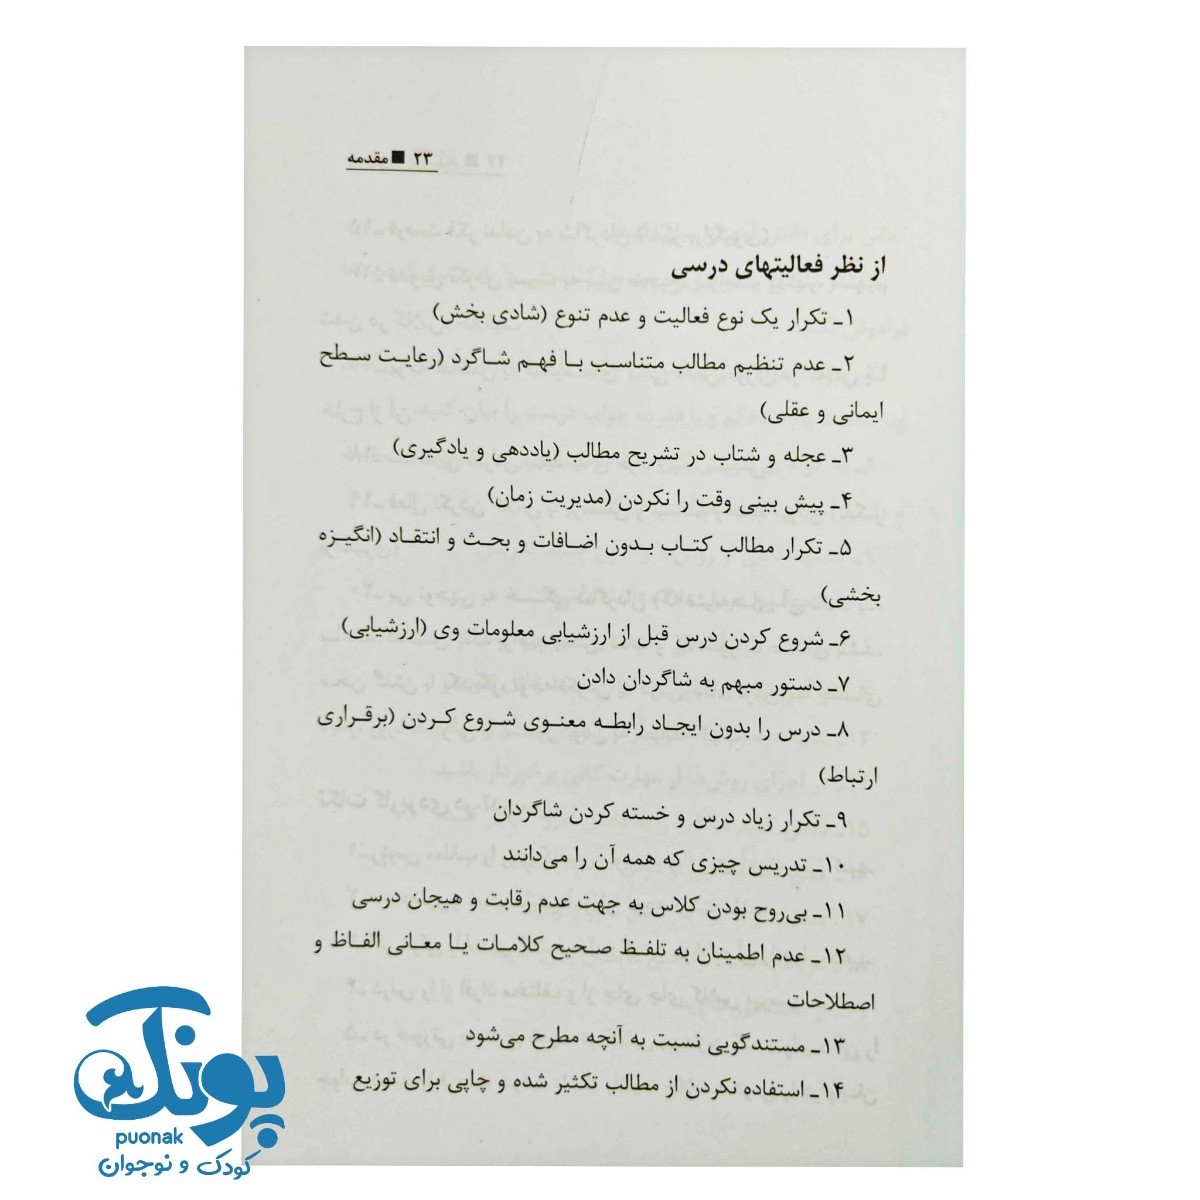 ۲۳ ■ مقدمه
از نظر فعالیتهای درسی
۱ـ تکرار یک نوع فعالیت و عدم تنوع (شادی بخش)
۲ـ عدم تنظیم مطالب متناسب با فهم شاگرد (رعایت سطح
ایمانی و عقلی)
۳ـ عجله و شتاب در تشریح مطالب (یاددهی و یادگیری)
۴ـ پیش بینی وقت را نکردن (مدیریت زمان)
۵ـ تکرار مطالب کتاب بدون اضافات و بحث و انتقاد (انگیزه
بخشی)
۶ـ شروع کردن درس قبل از ارزشیابی معلومات وی (ارزشیابی)
۷ـ دستور مبهم به شاگردان دادن
۸ـ درس را بدون ایجاد رابطه معنوی شروع کردن (برقراری
ارتباط)
۹ـ تکرار زیاد درس و خسته کردن شاگردان
۱۰ـ تدریس چیزی که همه آن را می‌دانند
۱۱ـ بی‌روح بودن کلاس به جهت عدم رقابت و هیجان درسی
۱۲ـ عدم اطمینان به تلفظ صحیح کلامات یا معانی الفاظ و
اصطلاحات
۱۳ـ مستندگویی نسبت به آنچه مطرح می‌شود
۱۴ـ استفاده نکردن از مطالب تکثیر شده و چاپی برای توزیع
پونک
puonak
کودک و نوجوان